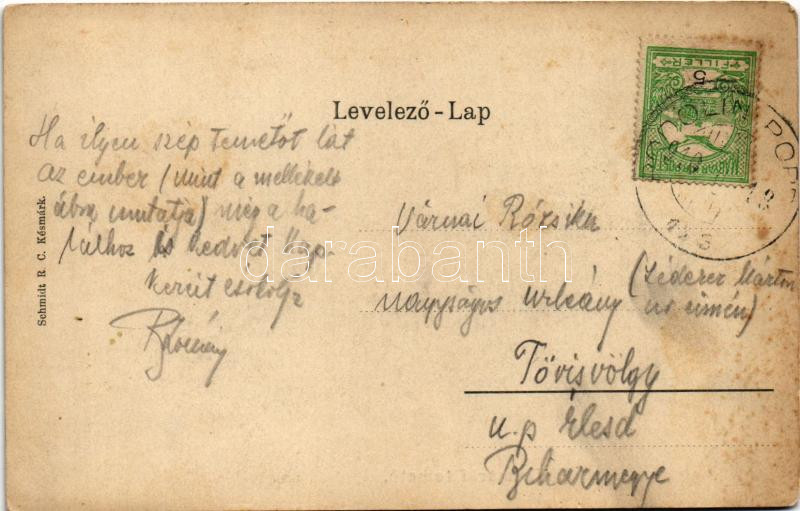 Levelező-Lap
Ha ilyen szép temetőt lát
az ember (mint a mellékelt
ábra mutatja) még a ha-
lálhoz is kedvet kap.
Kezeit csókolja
Schmidt R. C. Késmárk.
Várnai Rózsika
nagyságos urleány
(Léderer Márton
ur címén)
Tövisvölgy
u.p Élesd
Biharmegye
FILLÉR
5
darabanth.com